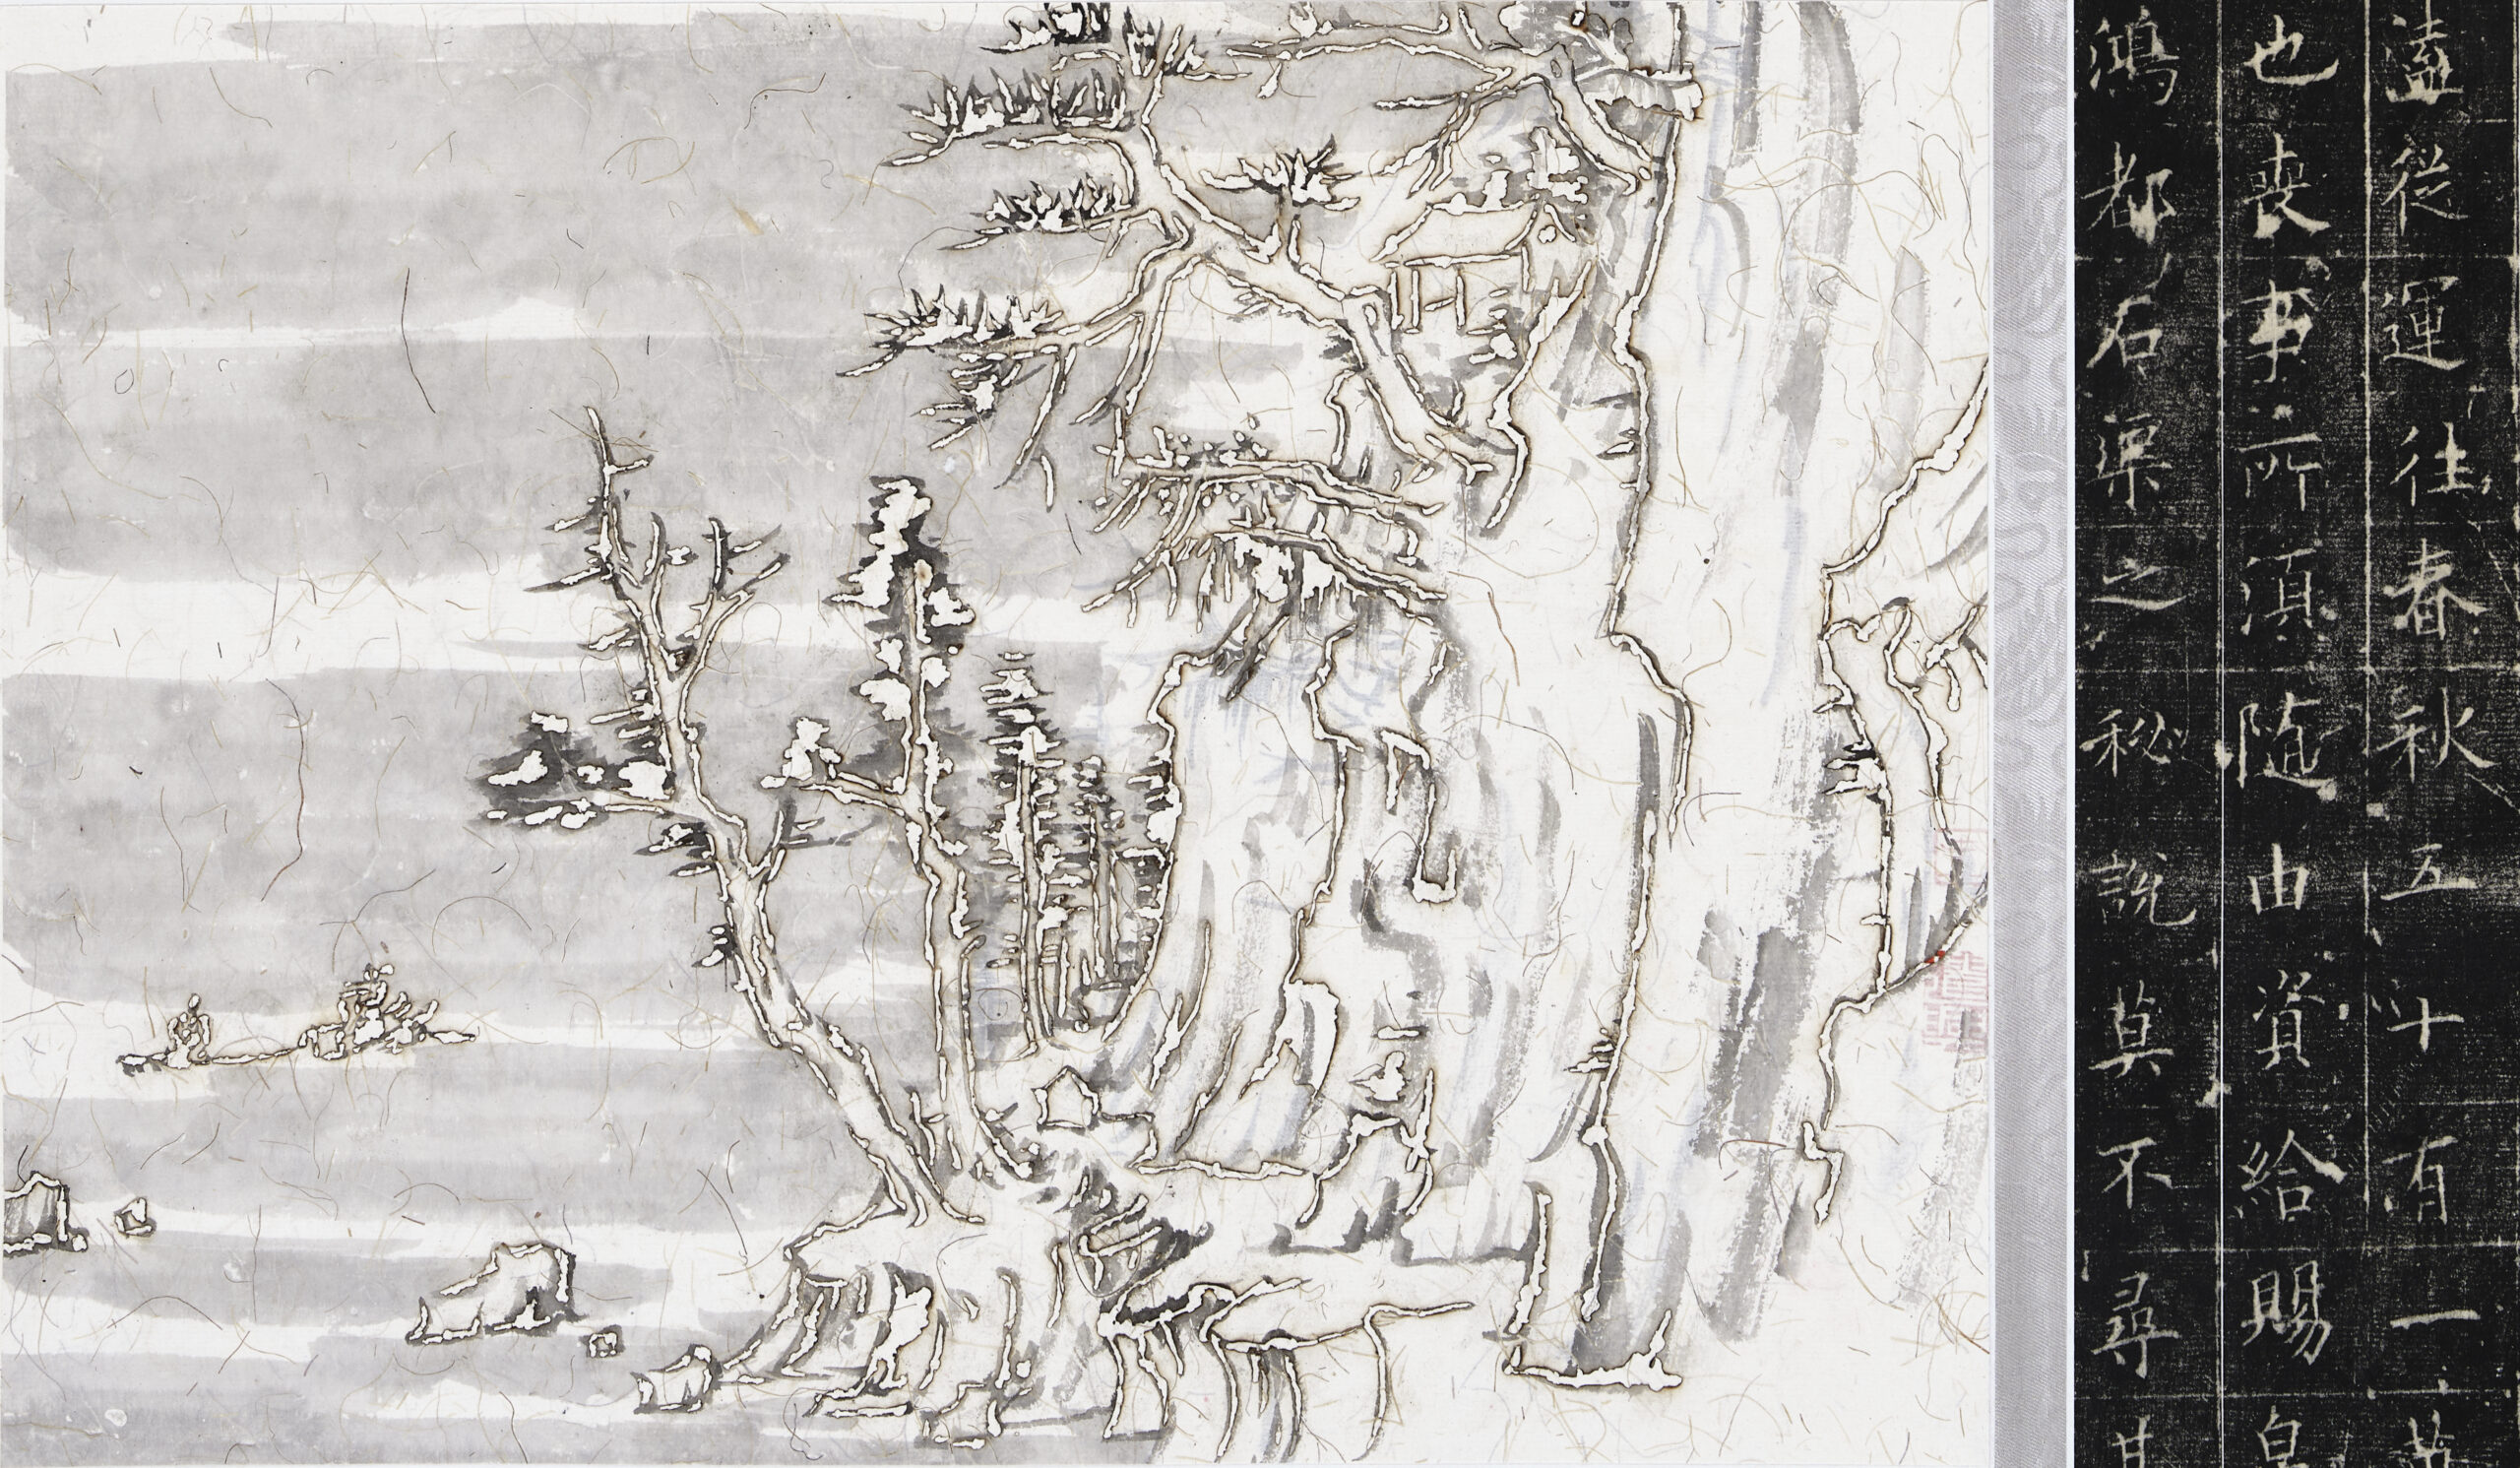 溘從運往春秋五十有一
也喪事所須随由資給賜
鴻都石渠之秘説莫不尋其